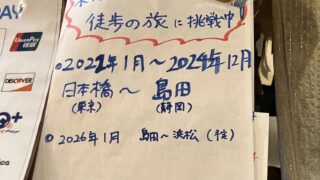 徒歩の旅に挑戦中
○2022年1月～2024年12月
日本橋～島田
(東京) (静岡)
◎2026年1月 島田～浜松(予定)
PAY
UnionPay
银联
DISCOVER